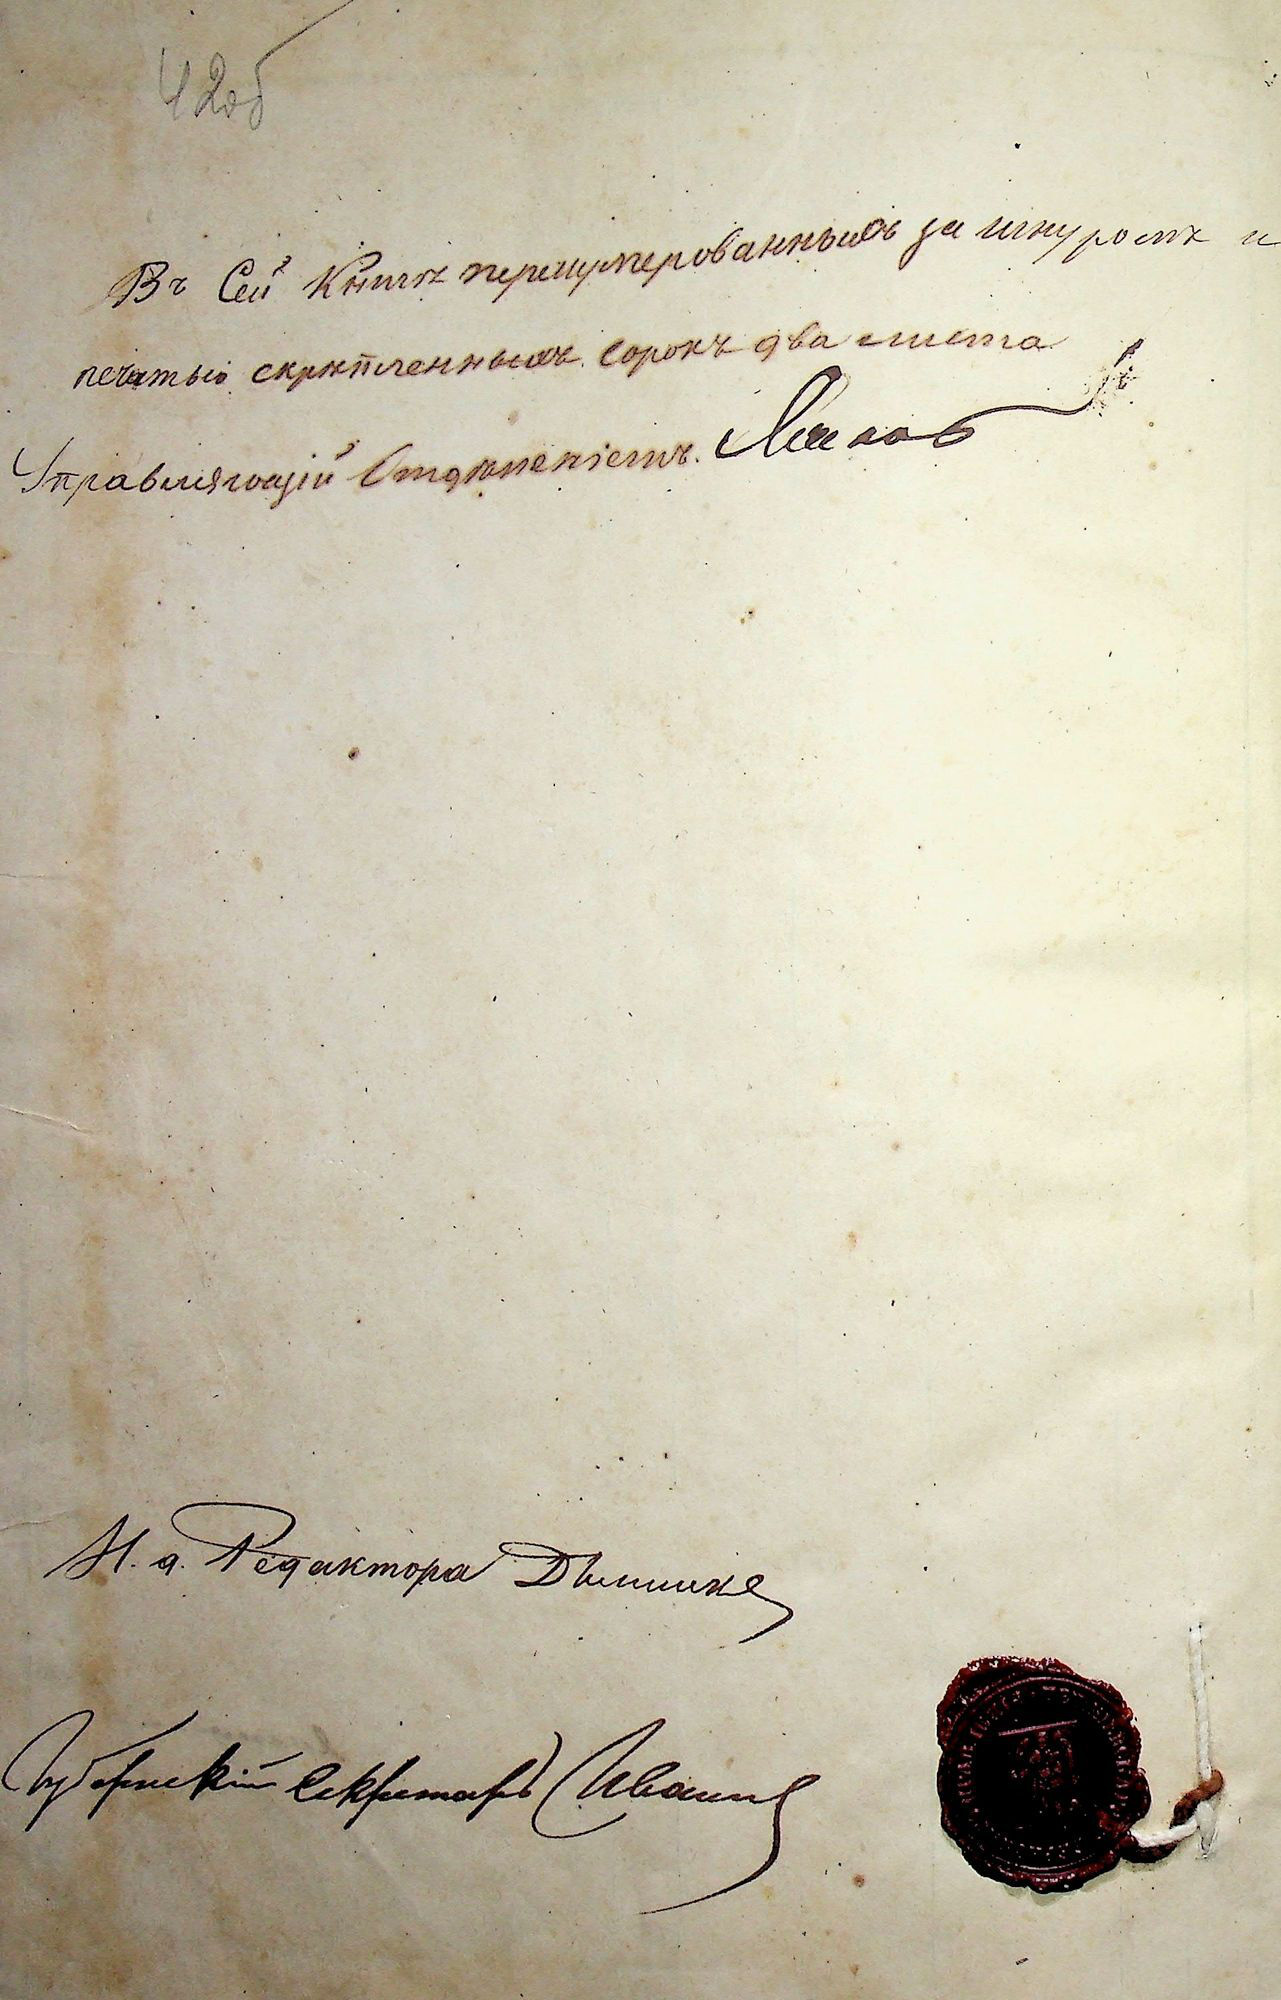 42об
Въ Сей Книгѣ перенумерованныхъ за шнуромъ и
печатью скрѣпленныхъ сорокъ два листа
Управляющій Отдѣленіемъ
И. д. Редактора
Губернскій Секретарь